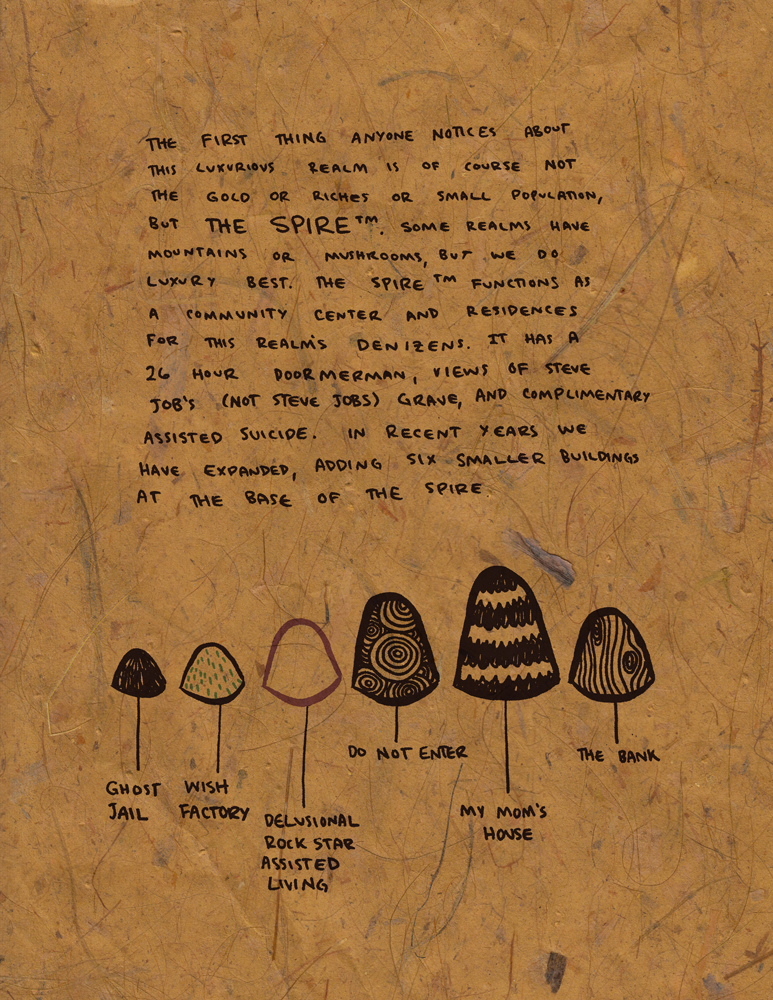 THE FIRST THING ANYONE NOTICES ABOUT
THIS LUXURIOUS REALM IS OF COURSE NOT
THE GOLD OR RICHES OR SMALL POPULATION,
BUT THE SPIRE™. SOME REALMS HAVE
MOUNTAINS OR MUSHROOMS, BUT WE DO
LUXURY BEST. THE SPIRE™ FUNCTIONS AS
A COMMUNITY CENTER AND RESIDENCES
FOR THIS REALM'S DENIZENS. IT HAS A
26 HOUR DOORMERMAN, VIEWS OF STEVE
JOB'S (NOT STEVE JOBS) GRAVE, AND COMPLIMENTARY
ASSISTED SUICIDE. IN RECENT YEARS WE
HAVE EXPANDED, ADDING SIX SMALLER BUILDINGS
AT THE BASE OF THE SPIRE.
GHOST
JAIL
WISH
FACTORY
DELUSIONAL
ROCK STAR
ASSISTED
LIVING
DO NOT ENTER
MY MOM'S
HOUSE
THE BANK